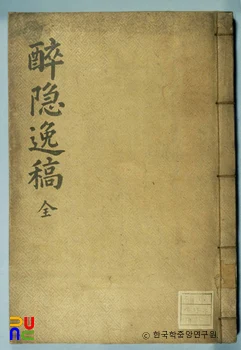 醉隐逸稿 全
© 한국학중앙연구원